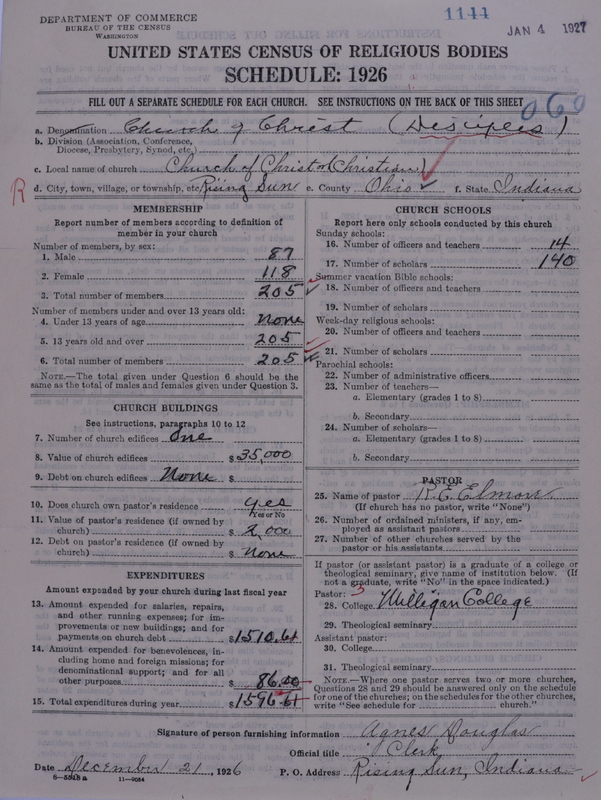 DEPARTMENT OF COMMERCE
BUREAU OF THE CENSUS
WASHINGTON
1144
JAN 4 1927
UNITED STATES CENSUS OF RELIGIOUS BODIES
SCHEDULE: 1926
FILL OUT A SEPARATE SCHEDULE FOR EACH CHURCH. SEE INSTRUCTIONS ON THE BACK OF THIS SHEET
060
a. Denomination Church of Christ (Discipels)
b. Division (Association, Conference,
Diocese, Presbytery, Synod, etc.)
c. Local name of church Church of Christ or (Christian)
R d. City, town, village, or township, etc. Rising Sun e. County Ohio f. State Indiana
MEMBERSHIP
Report number of members according to definition of
member in your church
Number of members, by sex:
1. Male 87
2. Female 118
3. Total number of members 205
Number of members under and over 13 years old:
4. Under 13 years of age none
5. 13 years old and over 205
6. Total number of members 205
NOTE.—The total given under Question 6 should be the
same as the total of males and females given under Question 3.
CHURCH BUILDINGS
See instructions, paragraphs 10 to 12
7. Number of church edifices One
8. Value of church edifices $35,000
9. Debt on church edifices None $
10. Does church own pastor's residence yes
Yes or No
11. Value of pastor's residence (if owned by
church) $2,000
12. Debt on pastor's residence (if owned by
church) $none
EXPENDITURES
Amount expended by your church during last fiscal year
13. Amount expended for salaries, repairs,
and other running expenses; for im-
provements or new buildings; and for
payments on church debt $1510.61
14. Amount expended for benevolences, in-
cluding home and foreign missions; for
denominational support; and for all
other purposes $86.00
15. Total expenditures during year $1596.61
CHURCH SCHOOLS
Report here only schools conducted by this church
Sunday schools:
16. Number of officers and teachers 14
17. Number of scholars 140
Summer vacation Bible schools:
18. Number of officers and teachers
19. Number of scholars
Week-day religious schools:
20. Number of officers and teachers
21. Number of scholars
Parochial schools:
22. Number of administrative officers
23. Number of teachers—
a. Elementary (grades 1 to 8)
b. Secondary
24. Number of scholars—
a. Elementary (grades 1 to 8)
b. Secondary
PASTOR
25. Name of pastor R. E. Elmore
(If church has no pastor, write "None")
26. Number of ordained ministers, if any, em-
ployed as assistant pastors
27. Number of other churches served by the
pastor or his assistants
If pastor (or assistant pastor) is a graduate of a college or
theological seminary, give name of institution below. (If
not a graduate, write "No" in the space indicated.)
Pastor: 3
28. College Milligan College
29. Theological seminary
Assistant pastor:
30. College
31. Theological seminary
NOTE.—Where one pastor serves two or more churches,
Questions 28 and 29 should be answered only on the schedule
for one of the churches; on the schedules for the other churches,
write "See schedule for church."
Signature of person furnishing information Agnes Douglas
Official title Clerk
Date December 21, 1926 P. O. Address Rising Sun, Indiana
11—9054